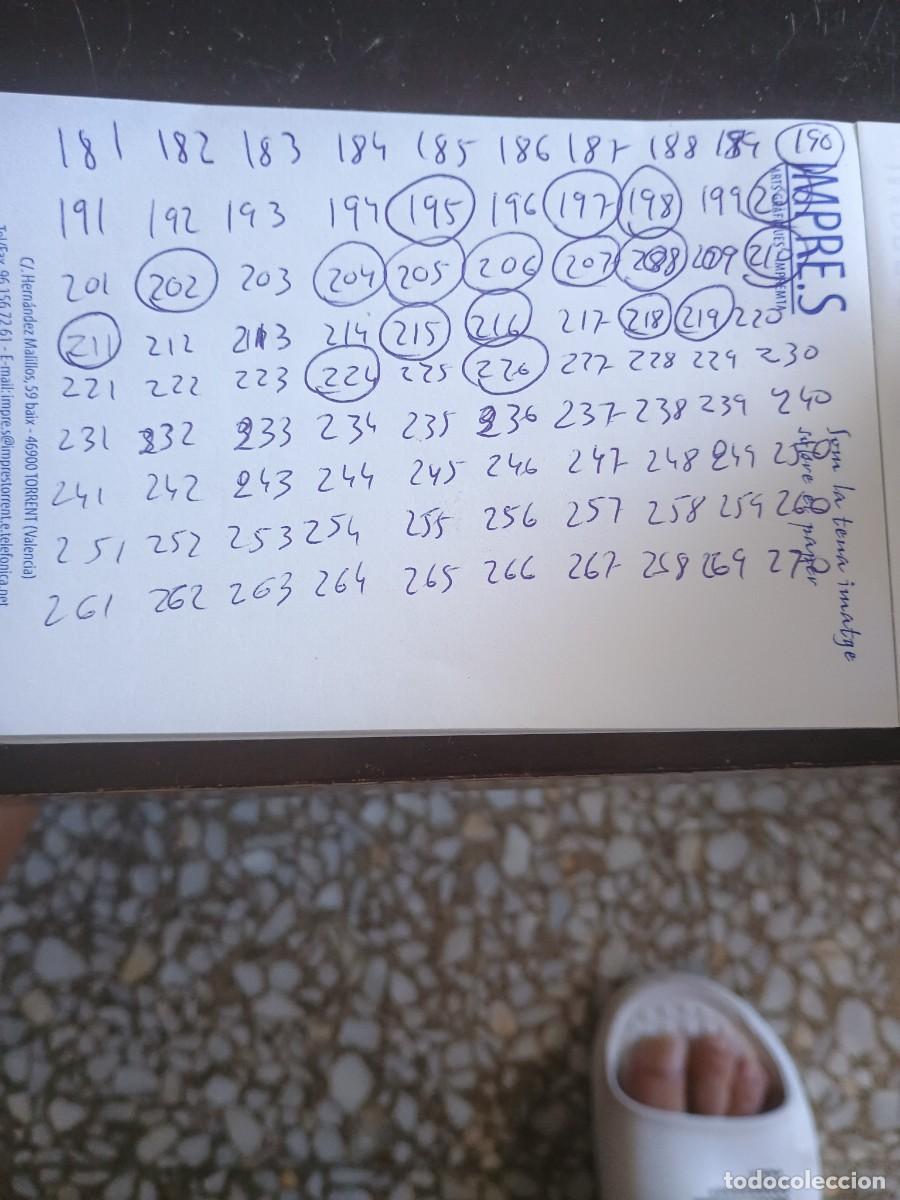 181 182 183 184 185 186 187 188 189 190
191 192 193 194 195 196 197 198 199
201 202 203 204 205 206 207 208 209 210
211 212 213 214 215 216 217 218 219 220
221 222 223 224 225 226 227 228 229 230
231 232 233 234 235 236 237 238 239 240
241 242 243 244 245 246 247 248 249 250
251 252 253 254 255 256 257 258 259 260
261 262 263 264 265 266 267 268 269 270
IMPRE.S
Som la teua imatge
sobre el paper
C/. Hernández Malillos, 59 baix - 46900 TORRENT (Valencia)
Tel/Fax 96 156 72 61 - E-mail: impre.s@imprestorrent.e.telefonica.net
todocoleccion